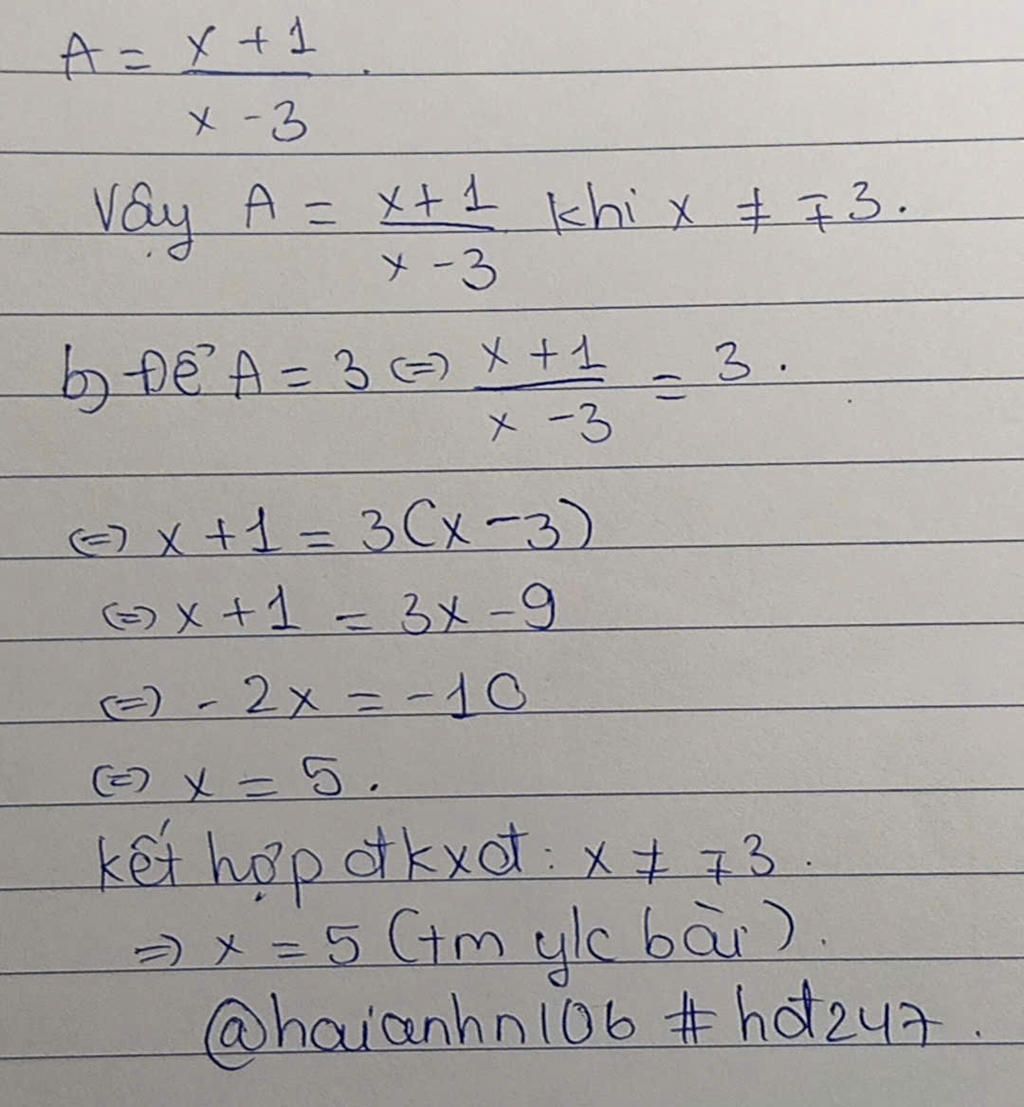 A = x + 1 / x - 3 .
Vậy A = x + 1 / x - 3 khi x ≠ ∓3.
b) Để A = 3 (=) x + 1 / x - 3 = 3 .
(=) x + 1 = 3(x - 3)
(=) x + 1 = 3x - 9
(=) - 2x = -10
(=) x = 5 .
kết hợp đkxđ: x ≠ ∓3 .
=) x = 5 (tm y/c bài) .
@haianhn106 # hđ247 .